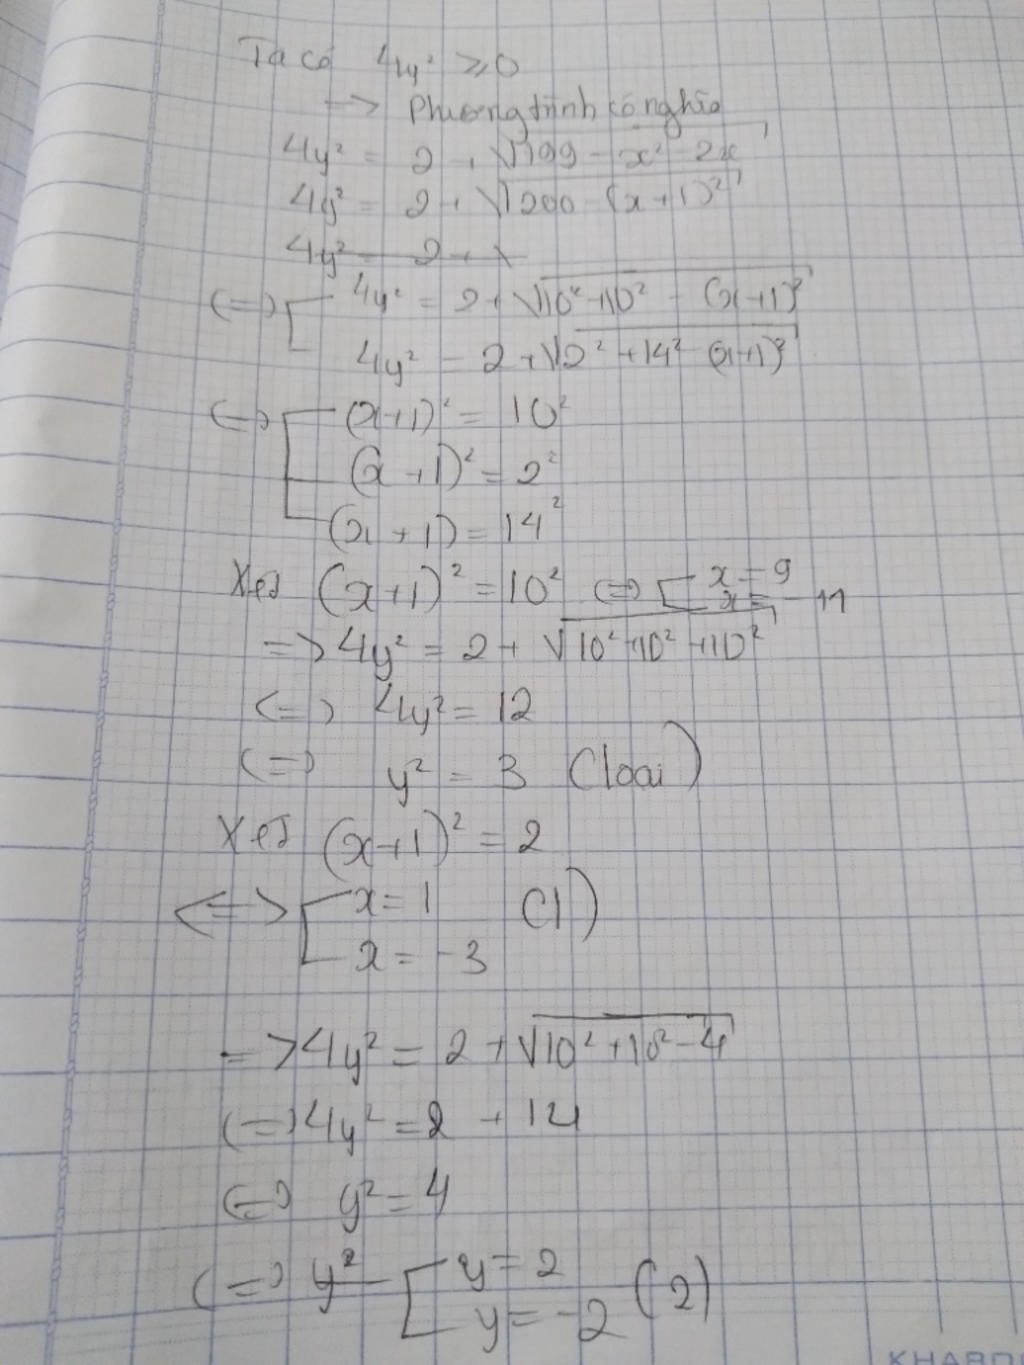 Ta có 4y² ≥ 0
-> Phương trình có nghĩa
4y² = 2 + √199 - x² - 2x
4y² = 2 + √200 - (x+1)²
4y² = 2 + √
(=) [ 4y² = 2 + √10² + 10² - (x+1)²
4y² = 2 + √2² + 14² - (x+1)²
(=) [ (x+1)² = 10²
(x+1)² = 2²
(x+1) = 14²
Xét (x+1)² = 10² (=) [ x = 9
x = -11
=> 4y² = 2 + √10² + 10² + 10²
(=) 4y² = 12
(=) y² = 3 (loại)
Xét (x+1)² = 2
<=> [ x = 1 (1)
x = -3
=> 4y² = 2 + √10² + 10² - 4
(=) 4y² = 2 + 14
(=) y² = 4
(=) y² [ y = 2
y = -2 (2)